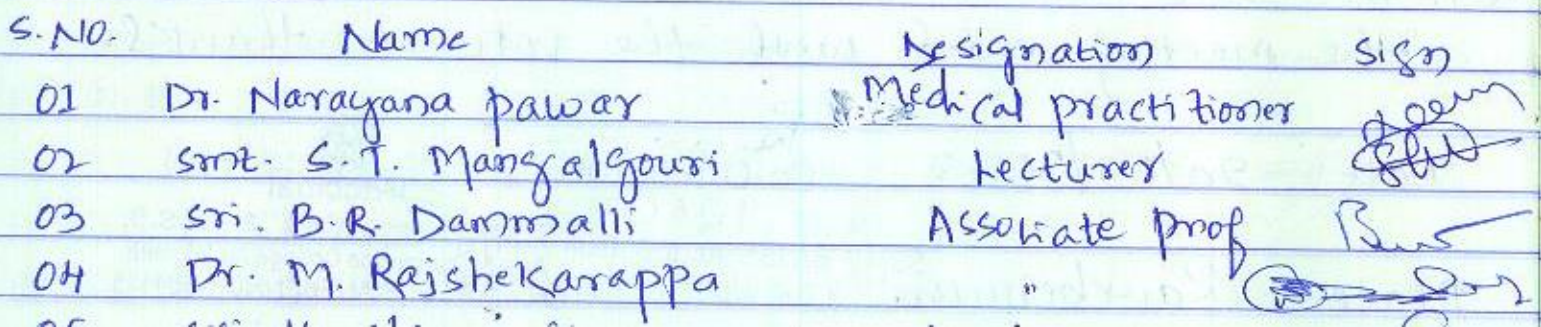 S.NO. Name Designation Sign
01 Dr. Narayana pawar Medical practitioner
02 smt. S.T. Mangalgouri Lecturer
03 sri. B.R. Dammalli Associate prof
04 Dr. M. Rajshekarappa "